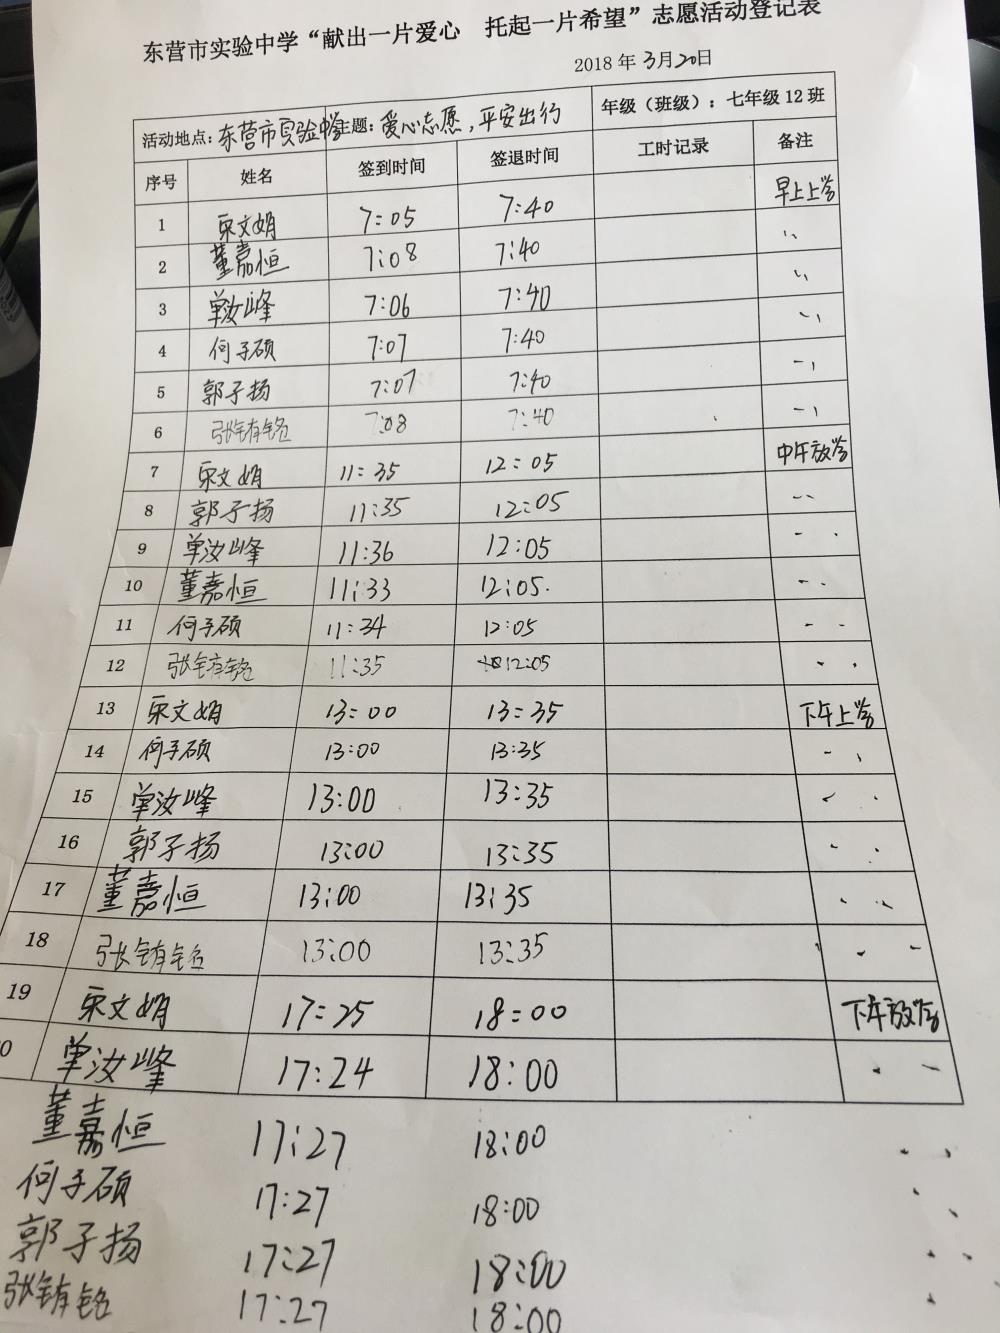 东营市实验中学“献出一片爱心 托起一片希望”志愿活动登记表
2018 年 3月20日
活动地点：东营市实验中学 主题：爱心志愿，平安出行 年级（班级）：七年级 12 班
序号 姓名 签到时间 签退时间 工时记录 备注
1 宋文娟 7:05 7:40 早上上学
2 董嘉恒 7:08 7:40 〃
3 单汝峰 7:06 7:40 〃
4 何子硕 7:07 7:40 〃
5 郭子扬 7:07 7:40 〃
6 7:08 7:40 〃
7 宋文娟 11:35 12:05 中午放学
8 郭子扬 11:35 12:05 〃
9 单汝峰 11:36 12:05 〃
10 董嘉恒 11:33 12:05. 〃
11 何子硕 11:34 12:05 〃
12 11:35 12:05 〃
13 宋文娟 13:00 13:35 下午上学
14 何子硕 13:00 13:35 〃
15 单汝峰 13:00 13:35 〃
16 郭子扬 13:00 13:35 〃
17 董嘉恒 13:00 13:35 〃
18 13:00 13:35 〃
19 宋文娟 17:25 18:00 下午放学
0 单汝峰 17:24 18:00 〃
董嘉恒 17:27 18:00 〃
何子硕 17:27 18:00 〃
郭子扬 17:27 18:00 〃
17:27 18:00 〃